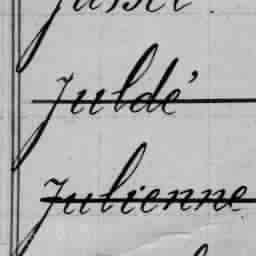 Juldé
Julienne